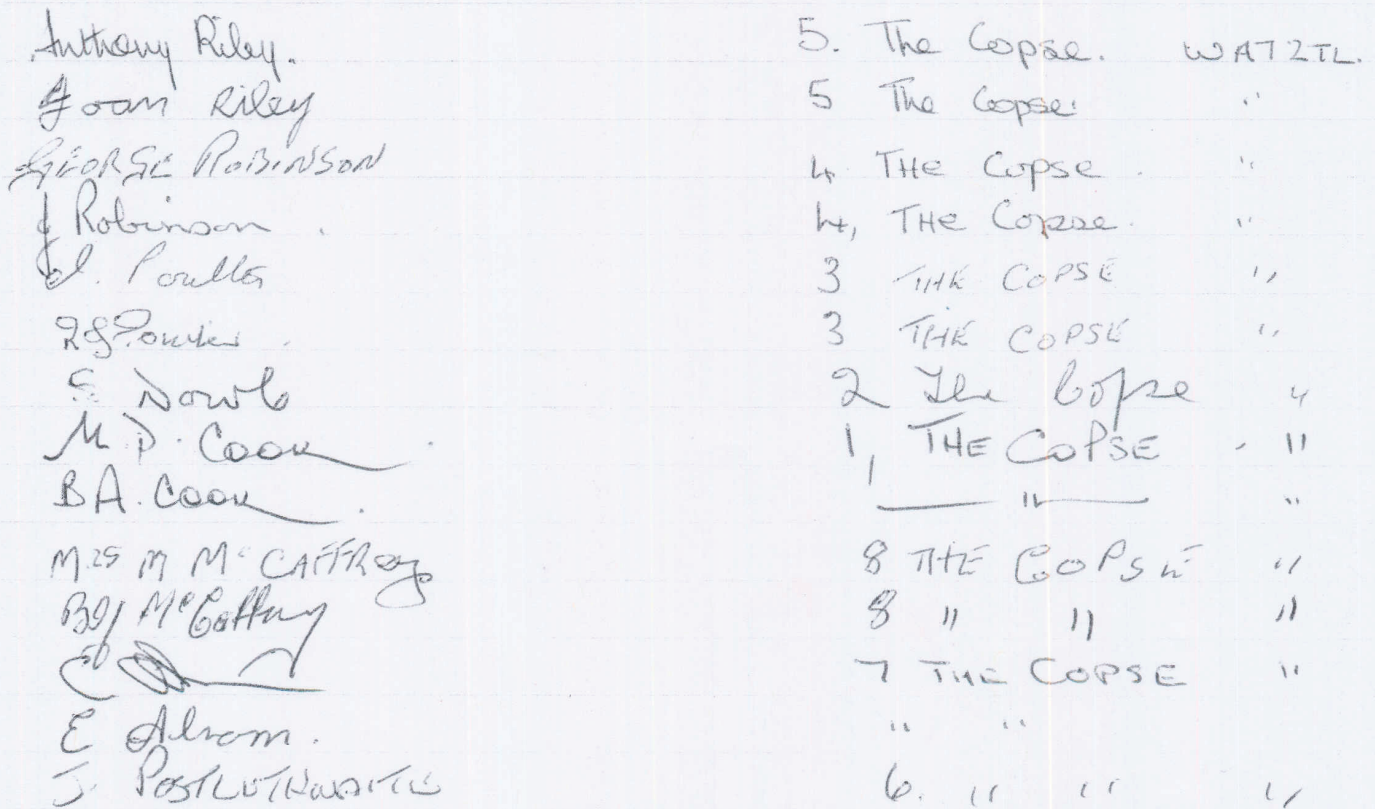 Anthony Riley. 5. The Copse. WA7 2TL.
Joan Riley 5 The Copse. "
GEORGE ROBINSON 4 THE Copse. "
J Robinson. 4, THE Copse. "
Poulter 3 THE COPSE "
3 THE COPSE "
S. 2 The Copse "
M. P. Cook 1, THE COPSE - "
B A. Cook. " "
MRS M McCAFFREY 8 THE COPSE "
McCaffrey 8 " " "
C 7 THE COPSE "
E Alram. " "
J. POSTLETHWAITE 6. " " "